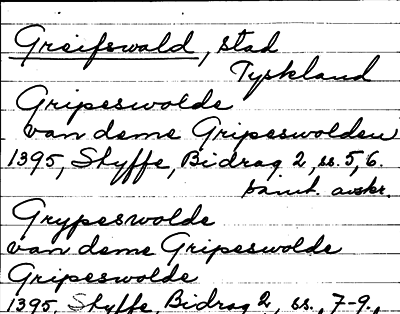 Greifswald, stad
Tyskland
Gripeswolde
van deme Gripeswolden
1395, Styffe, Bidrag 2, ss. 5, 6.
samt. avskr.
Grypeswolde
van deme Gripeswolde
Gripeswolde
1395, Styffe, Bidrag 2, ss., 7-9.,